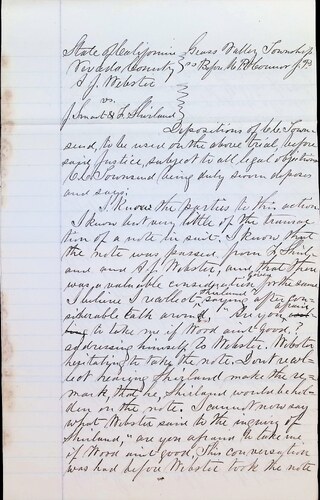 State of California Grass Valley Township
Nevada County ss Before M. P. O'Connor J. P.
A J. Webster
vs.
J Smart & L Shirland
Depositions of C.C. Town-
send, to be used on the above trial, before
said justice, subject to all legal objections
C.C. Townsend being duly sworn deposes
and says:
I know the parties to this action
I know but very little of the transac-
tion of a note in suit. I know that
the note was passed from L. Shirl-
and and A. J. Webster, and that there
was a valuable consideration given for the same
I believe I recollect Shirland saying after con-
siderable talk around, "Are you afraid
to take me if Wood ain't good,"?
addressing himself to Webster. Webster
hesitating to take the note. Dont recol-
lect hearing Shirland make the re-
mark, that he, Shirland would be hol-
den on the note. I cannot now say
what Webster said to the inquiry of
Shirland, "are you afraid to take me
if Wood ain't good, This conversation
was had before Webster took the note